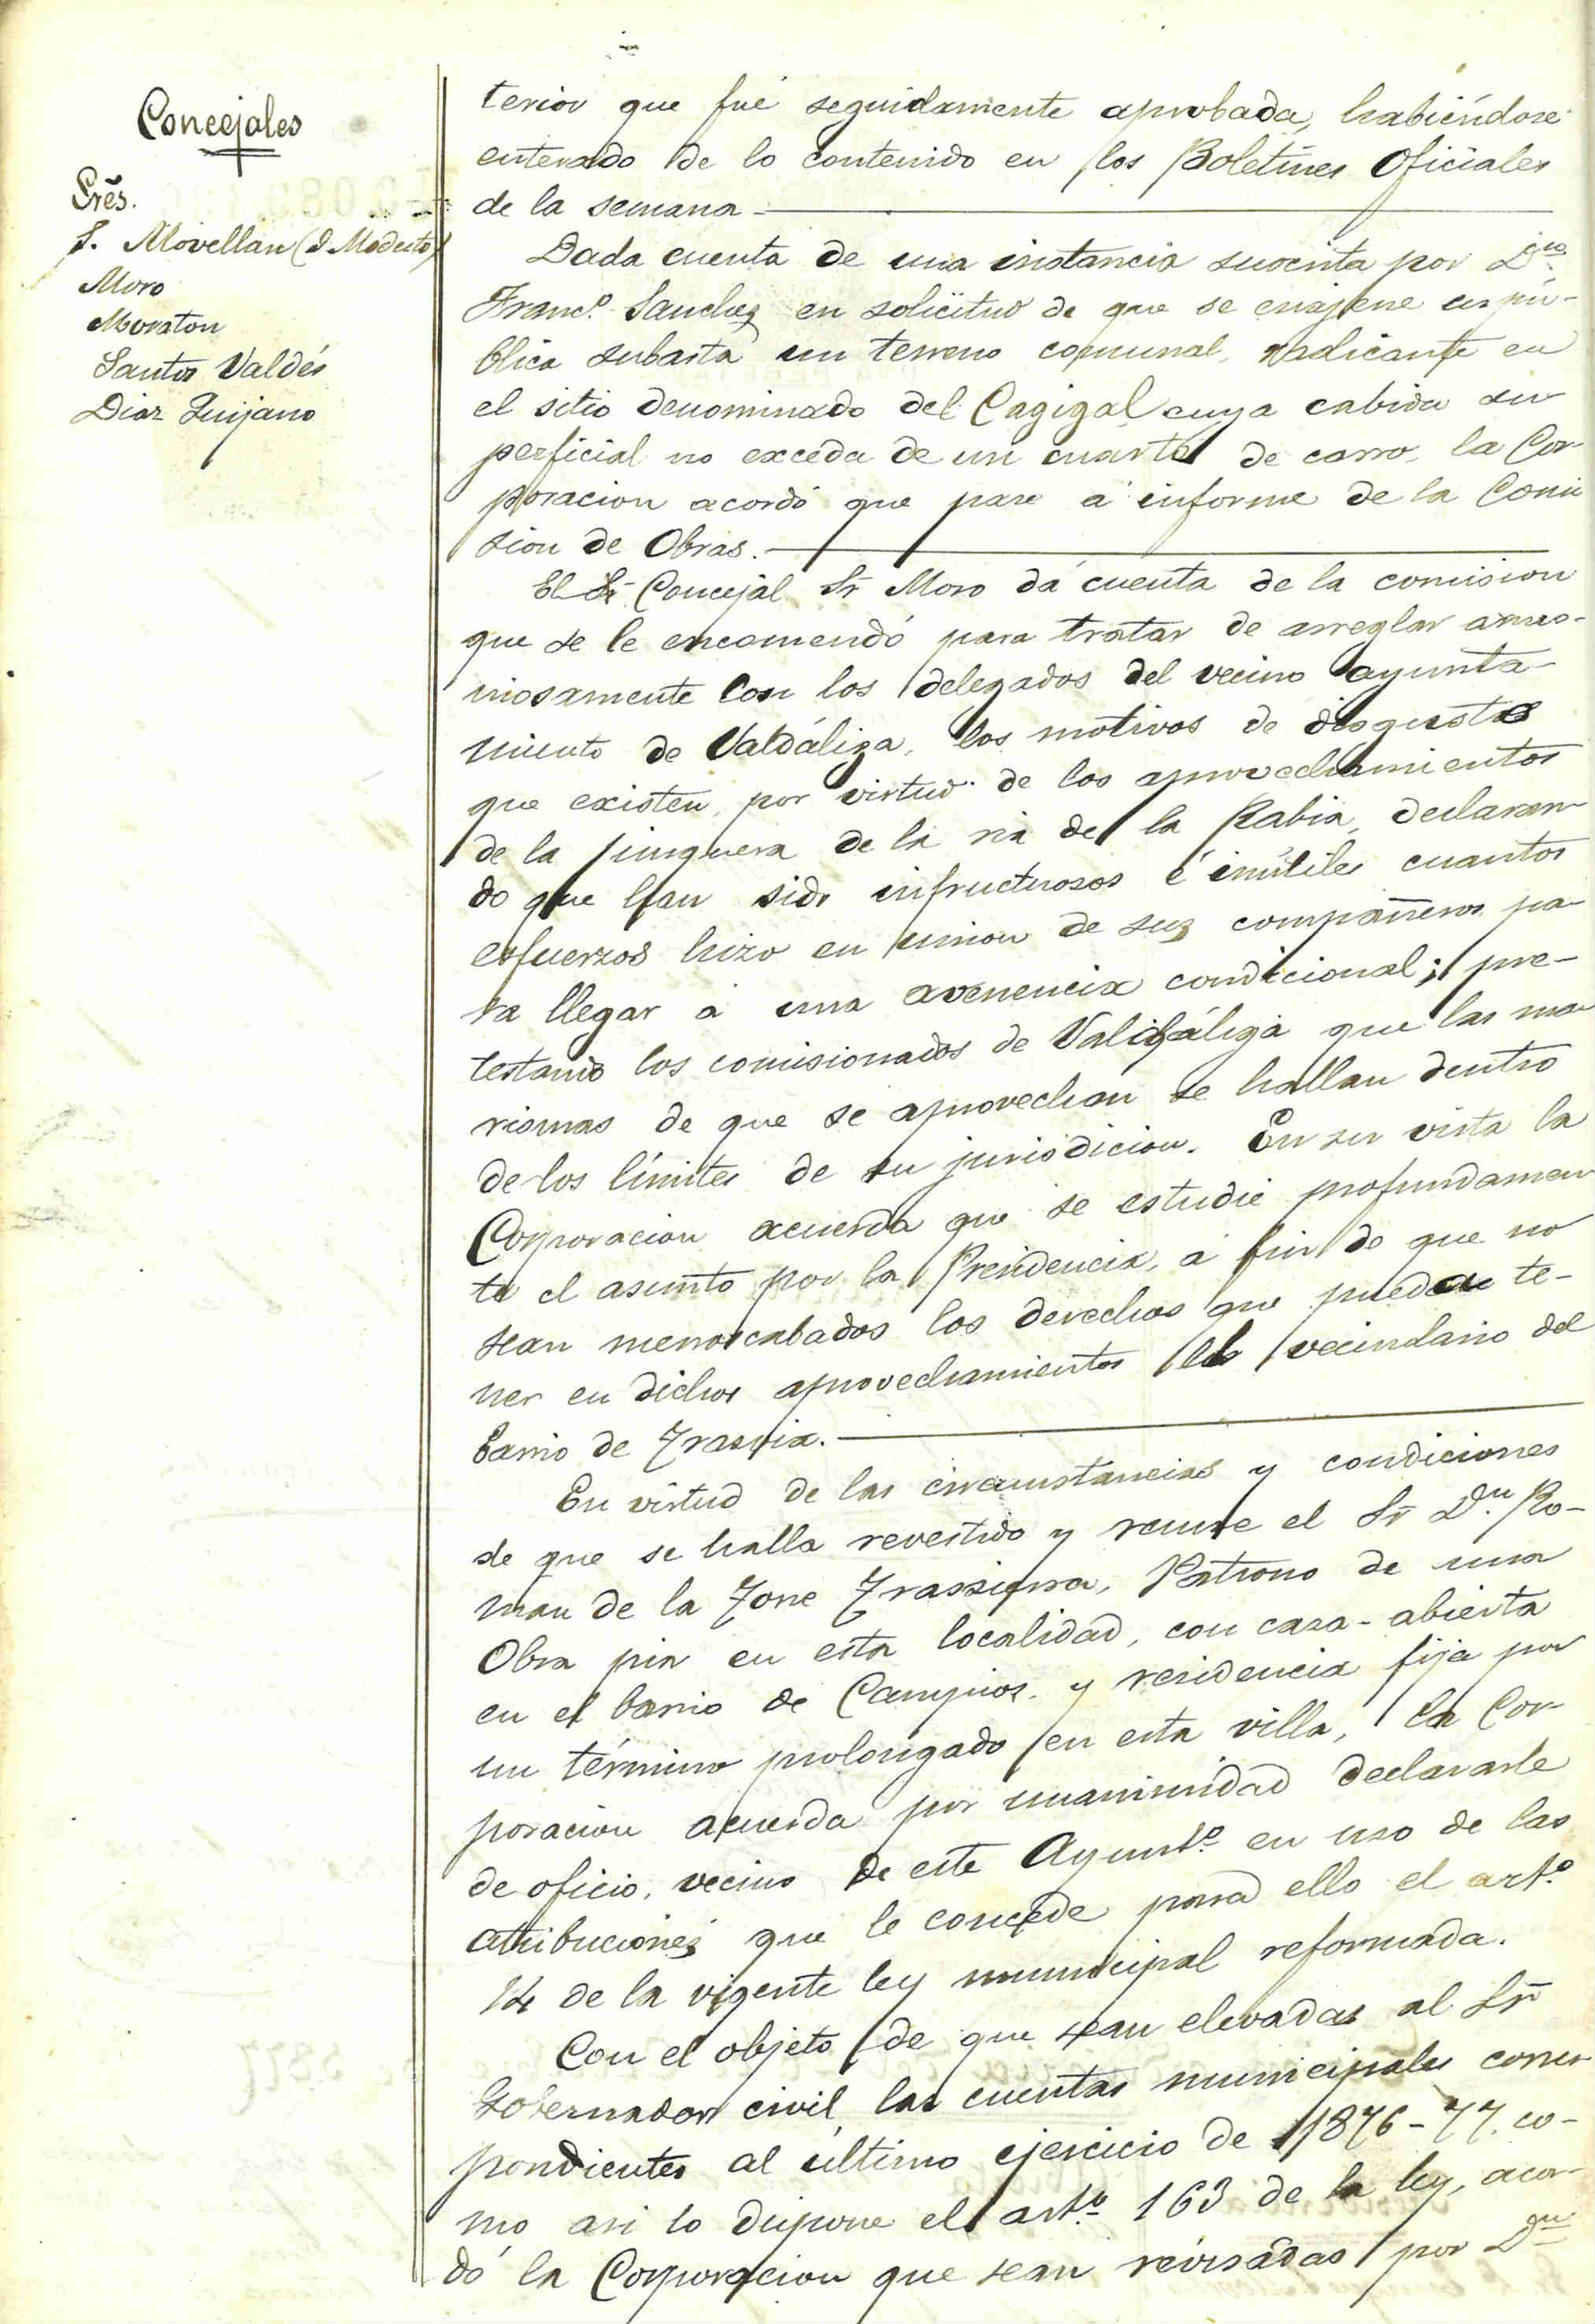 Concejales
Sres.
S. Movellan (D Modesto)
Moro
Moraton
Santos Valdés
Diaz Quijano
terior que fué seguidamente aprobada, habiéndose
enterado de lo contenido en los Boletines Oficiales
de la semana.
Dada cuenta de una instancia suscrita por Dn
Franco. Sanchez en solicitud de que se enajene en pú-
blica subasta un terreno comunal, radicante en
el sitio denominado del Cagigal cuya cabida su
perficial no exceda de un cuarto de carro, la Cor-
poracion acordó que pase á informe de la Comi
sion de Obras.
El Sr Concejal Sr Moro dá cuenta de la comision
que se le encomendó para tratar de arreglar armo-
niosamente con los delegados del vecino ayunta-
miento de Valdáliga, los motivos de disgustos
que existen, por virtud de los aprovechamientos
de la junquera de la ria de la Rabia, declaran-
do que han sido infructuosos é inútiles cuantos
esfuerzos hizo en union de sus compañeros pa-
ra llegar á una avenencia condicional; pre-
testando los comisionados de Valdáliga que las ma
rismas de que se aprovechan se hallan dentro
de los límites de su jurisdicion. En su vista la
Corporacion acuerda que se estudie profundamen
te el asunto por la Presidencia, á fin de que no
sean menoscabados los derechos que puedan te-
ner en dichos aprovechamientos el vecindario del
barrio de Trasvia.
En virtud de las circunstancias y condiciones
de que se halla revestido y reune el Sr Dn. Ro-
man de la Torre Trassierra, Patrono de una
Obra pia en esta localidad, con casa-abierta
en el barrio de Campios. y residencia fija por
un término prolongado en esta villa, la Cor-
poracion acuerda por unanimidad declararle
de oficio, vecino de este Ayunto. en uso de las
atribuciones que le concede para ello el arto.
14 de la vigente ley municipal reformada.
Con el objeto de que sean elevadas al Sr
Gobernador civil, las cuentas municipales corres
pondientes al último ejercicio de 1876-77. co-
mo asi lo dispone el arto. 163 de la ley, acor-
dó la Corporacion que sean revisadas por Dn